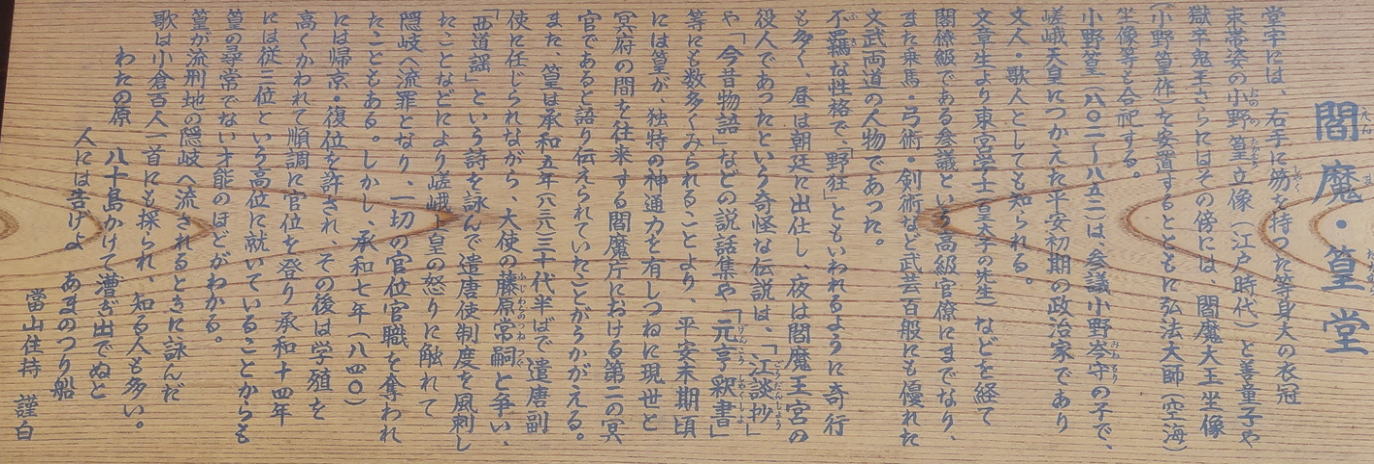 閻魔・篁堂
堂宇には、右手に笏を持つた等身大の衣冠
束帯姿の小野篁立像（江戸時代）と善童子や
獄卒鬼王さらにはその傍には、閻魔大王坐像
（小野篁作）を安置するとともに弘法大師（空海）
坐像等も合祀する。
小野篁（八〇二〜八五二）は、参議小野岑守の子で、
嵯峨天皇につかえた平安初期の政治家であり
文人・歌人としても知られる。
文章生より東宮学士（皇太子の先生）などを経て
閣僚級である参議という高級官僚にまでなり、
また乗馬・弓術・剣術など武芸百般にも優れた
文武両道の人物であった。
不羈な性格で、「野狂」ともいわれるように奇行
も多く、昼は朝廷に出仕し、夜は閻魔王宮の
役人であったという奇怪な伝説は、「江談抄」
や「今昔物語」などの説話集や「元亨釈書」
等にも数多くみられることより、平安末期頃
には篁が、独特の神通力を有しつねに現世と
冥府の間を往来する閻魔庁における第二の冥
官であると語り伝えられていたことがうかがえる。
また、篁は承和五年八三三十代半ばで遣唐副
使に任じられながら、大使の藤原常嗣と争い、
「西道謡」という詩を詠んで遣唐使制度を風刺し
たことなどにより嵯峨上皇の怒りに触れて
隠岐へ流罪となり、一切の官位官職を奪われ
たこともある。しかし、承和七年（八四〇）
には帰京・復位を許され、その後は学殖を
高くかわれて順調に官位を登り承和十四年
には従三位という高位に就いていることからも
篁の尋常でない才能のほどがわかる。
篁が流刑地の隠岐へ流されるときに詠んだ
歌は小倉百人一首にも採られ、知る人も多い。
わたの原　八十島かけて漕ぎ出でぬと
人には告げよ　あまのつり船
當山住持　謹白